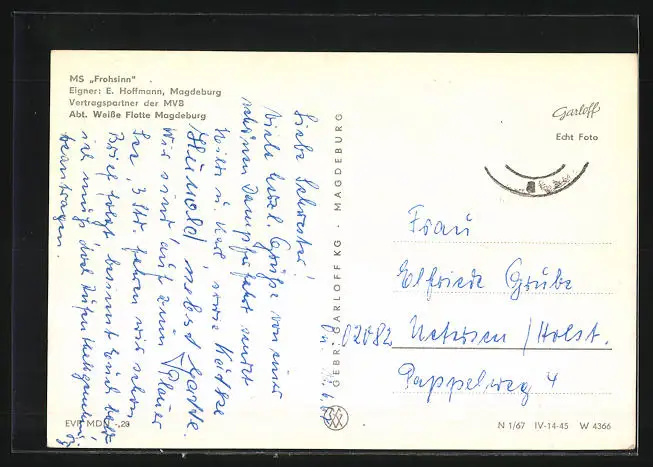 MS „Frohsinn"
Eigner: E. Hoffmann, Magdeburg
Vertragspartner der MVB
Abt. Weiße Flotte Magdeburg
Liebe Schwester!
Viele herzl. Grüße von einer
schönen Dampferfahrt sendet
Willi u. Karl sowie Käthe
nebst Gatte.
Wir sind auf zum Plauer
See, 3 Std. fahren wir schon
Brief folgt bestimmt Euch
ich muß
beantragen.
EVP MDN -,20
GEBR. GARLOFF KG · MAGDEBURG
Garloff
Echt Foto
Frau
Elfriede Grube
02082 Uetersen / Holst.
Pappelweg 4
N 1/67 IV-14-45 W 4366